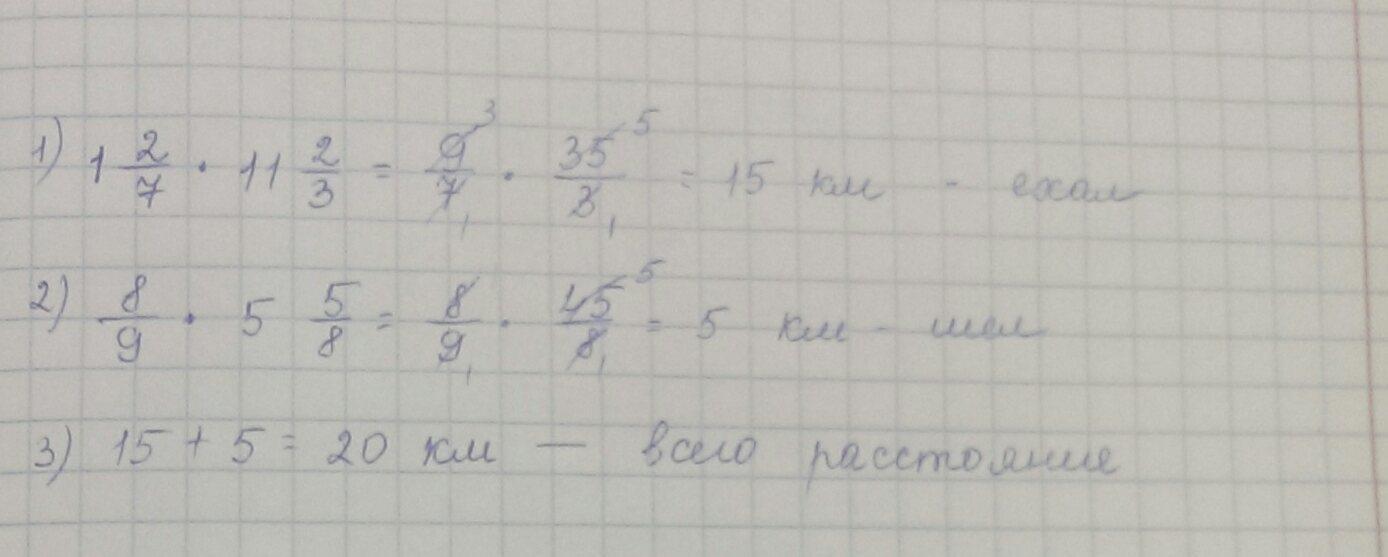 1) 1 2/7 · 11 2/3 = 9³/7₁ · 35⁵/3₁ = 15 км - ехал
2) 8/9 · 5 5/8 = 8/9₁ · 45⁵/8₁ = 5 км - шел
3) 15 + 5 = 20 км — всего расстояние